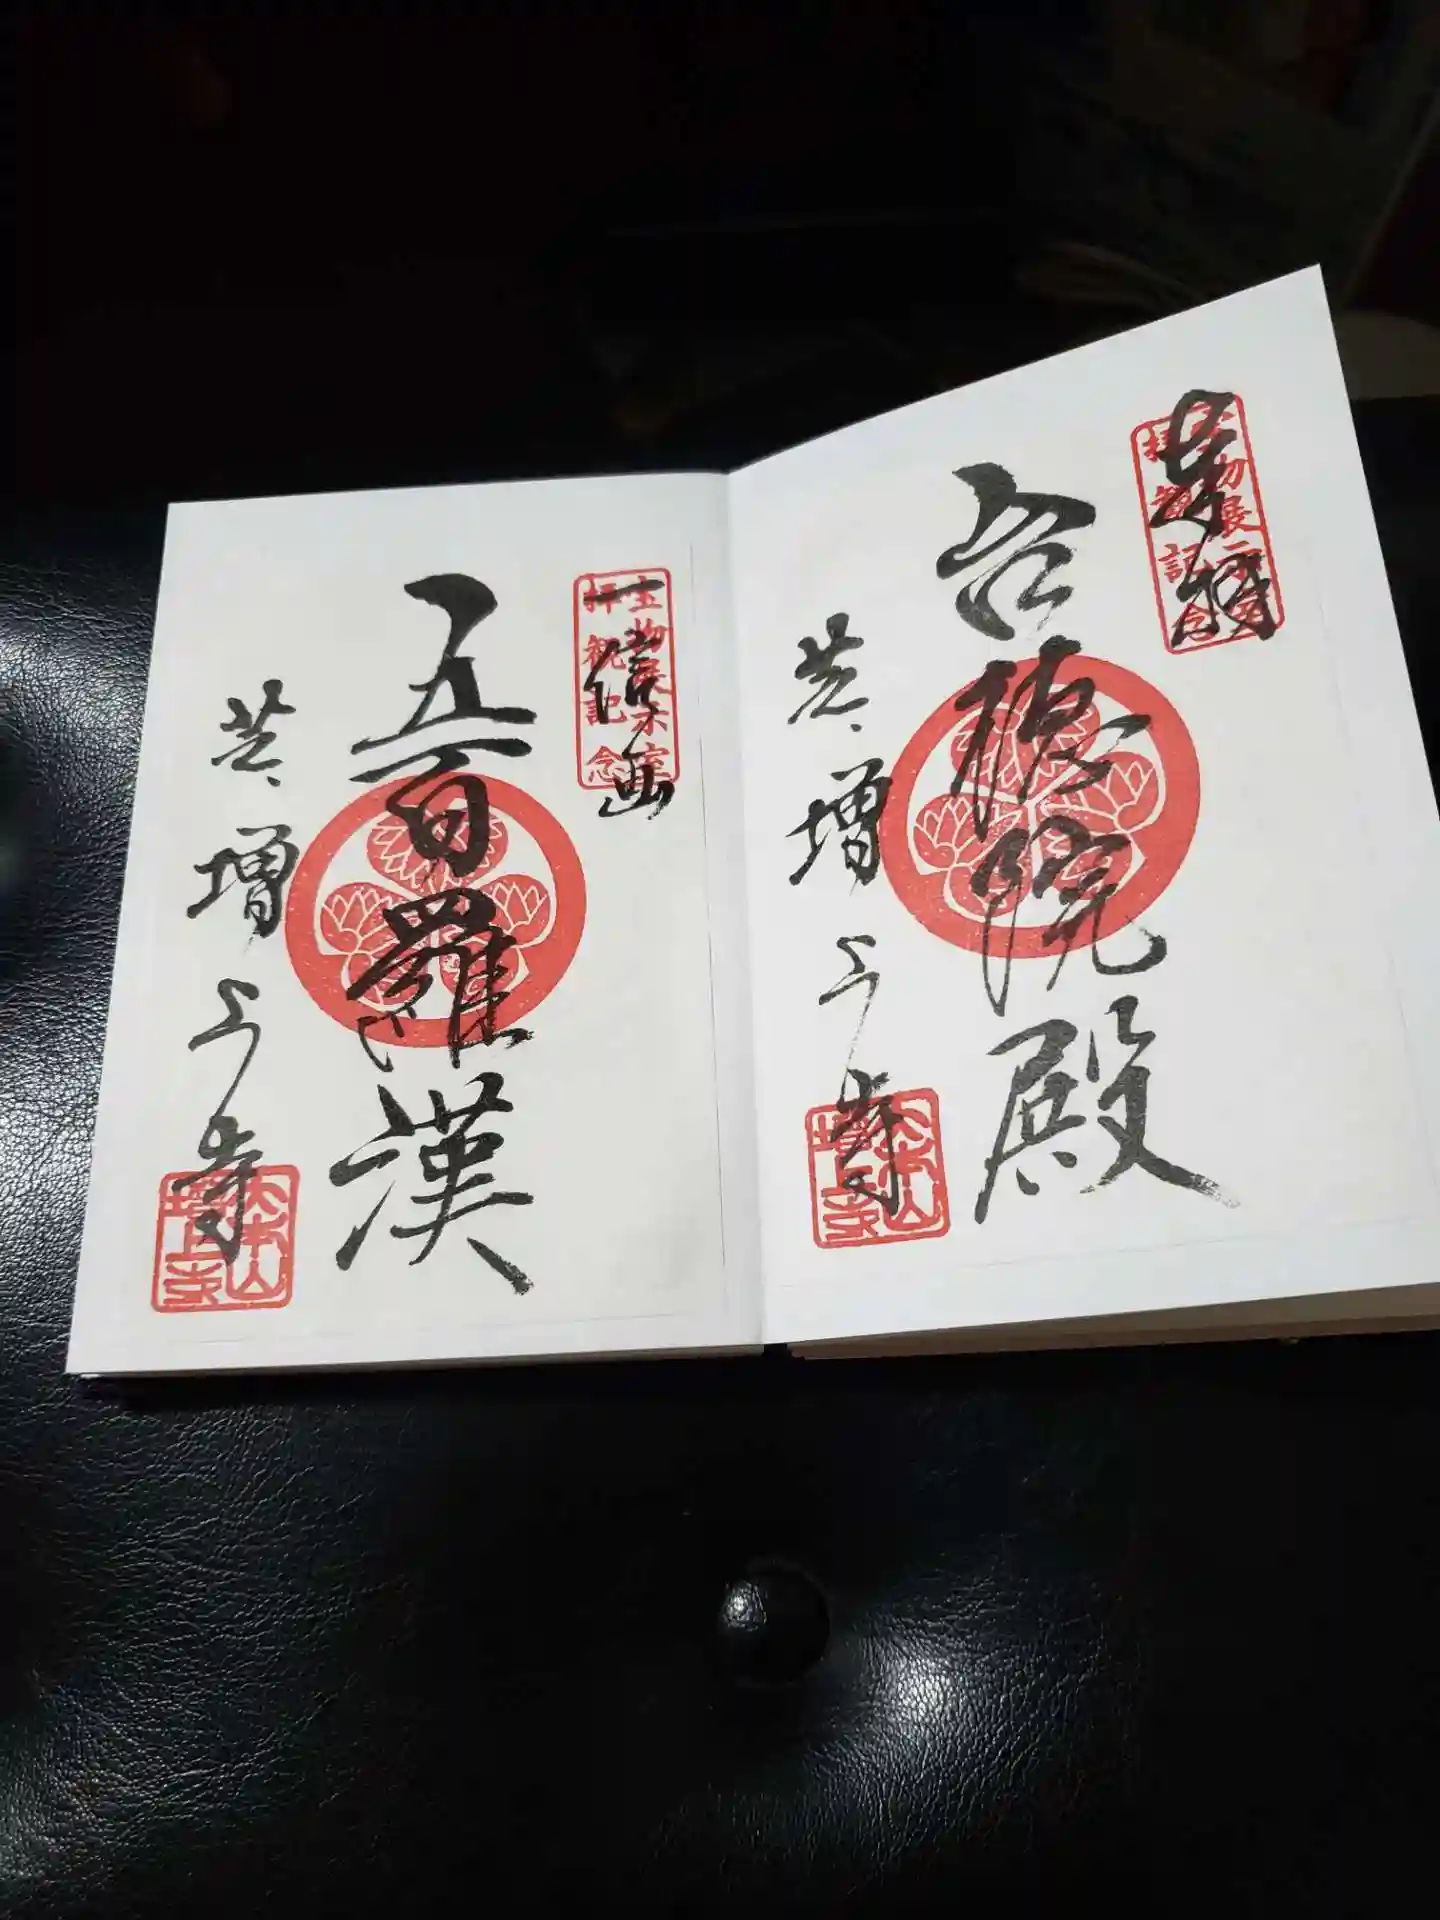 奉拝
宝物展示室
拝観記念
台徳院殿
芝 増上寺
三縁山
増上寺
一信画
宝物展示室
拝観記念
五百羅漢
芝 増上寺
三縁山
増上寺